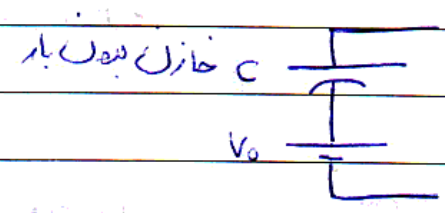 خازن بدون بار C
V₀